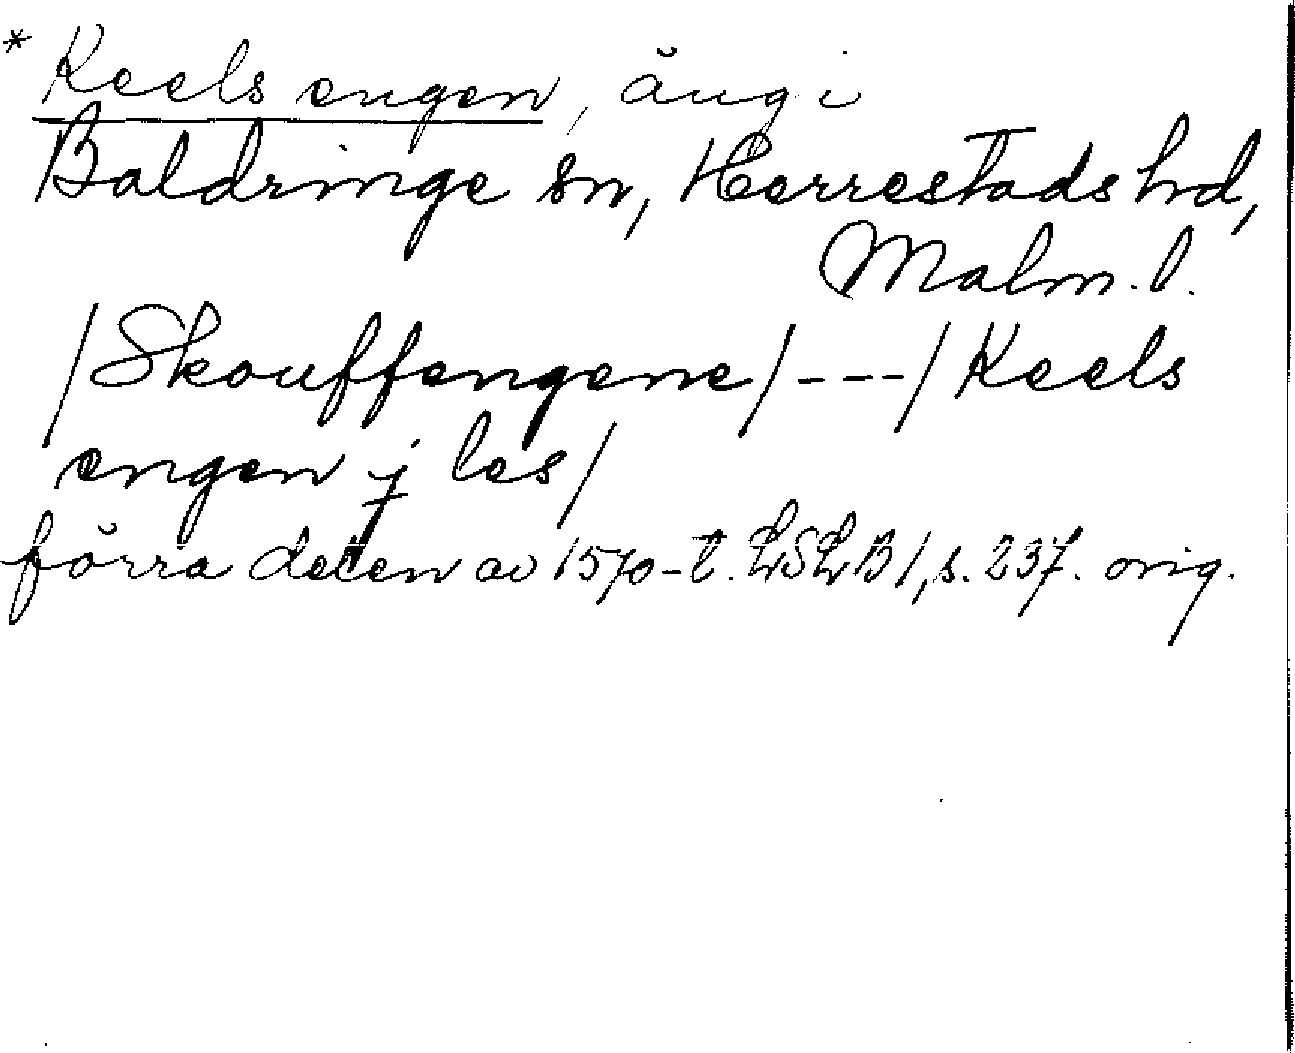 * Keels engen, äng i
Baldringe sn, Herrestads hd,
Malm. l.
/Skouffengene/ - - - / Keels
engen j les/
förra delen av 1570-t. LSLB 1, s. 237. orig.